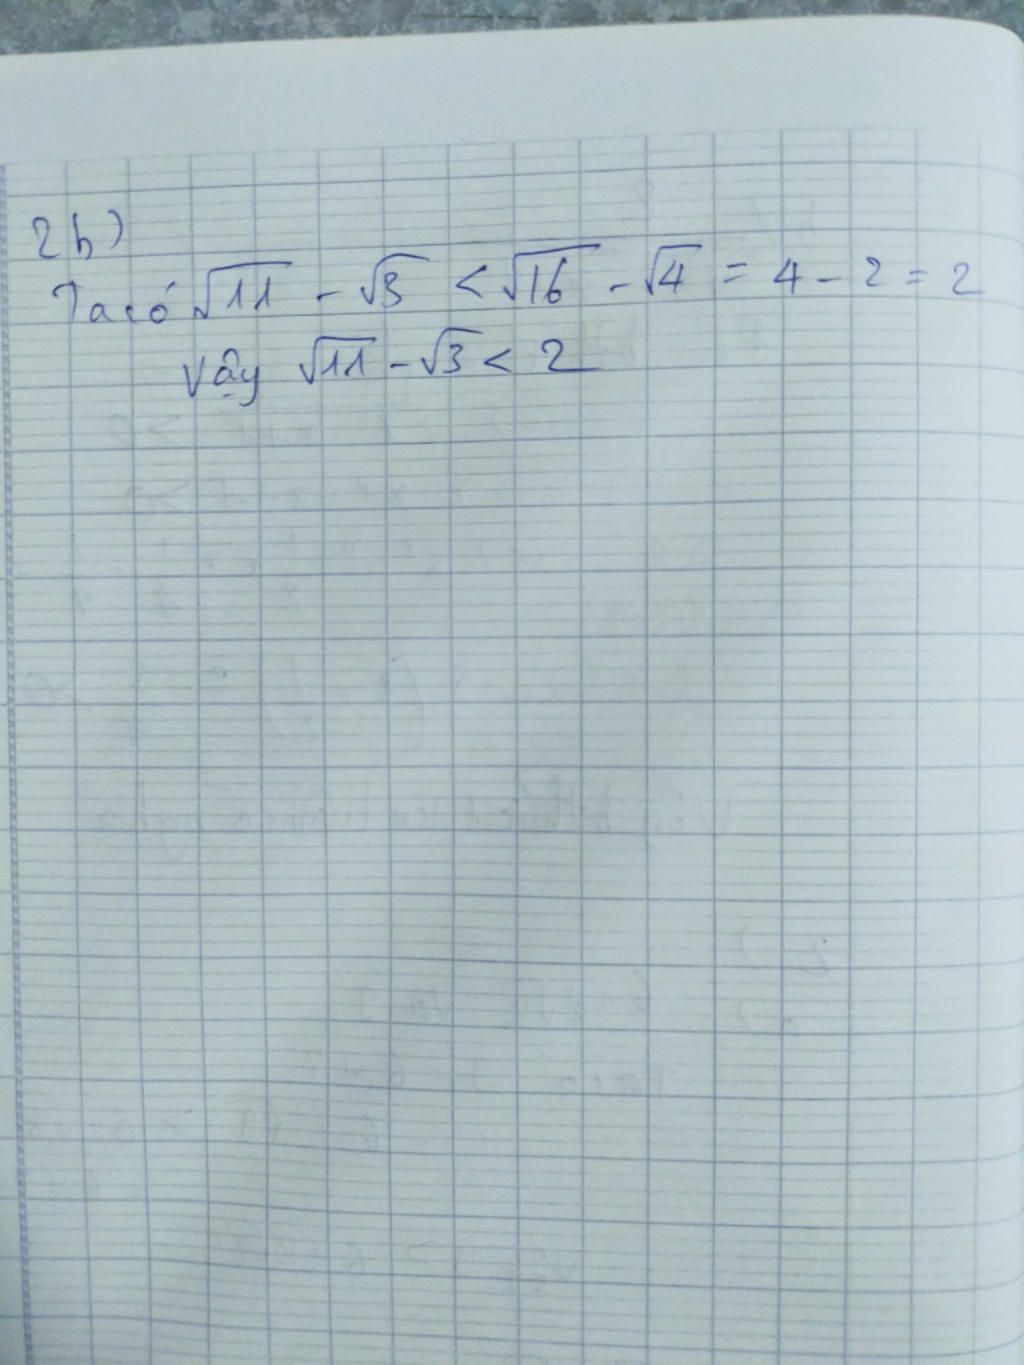 2b)
Ta có √11 - √3 < √16 - √4 = 4 - 2 = 2
Vậy √11 - √3 < 2